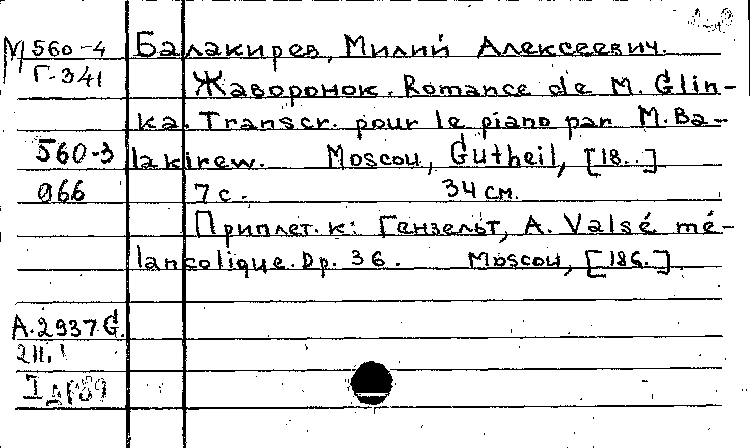 М 560-4 Балакирев, Милий Алексеевич.
Г-341 Жаворонок. Romance de M. Glin-
ka. Transcr. pour le piano par M. Ba-
560-3 lakirew. Moscou, Gutheil, [18..]
066 7 с. 34 см.
Приплет. к: Гензельт, A. Valsé mé-
lancolique. Op. 36. Moscou, [186.]
A.2937 G.